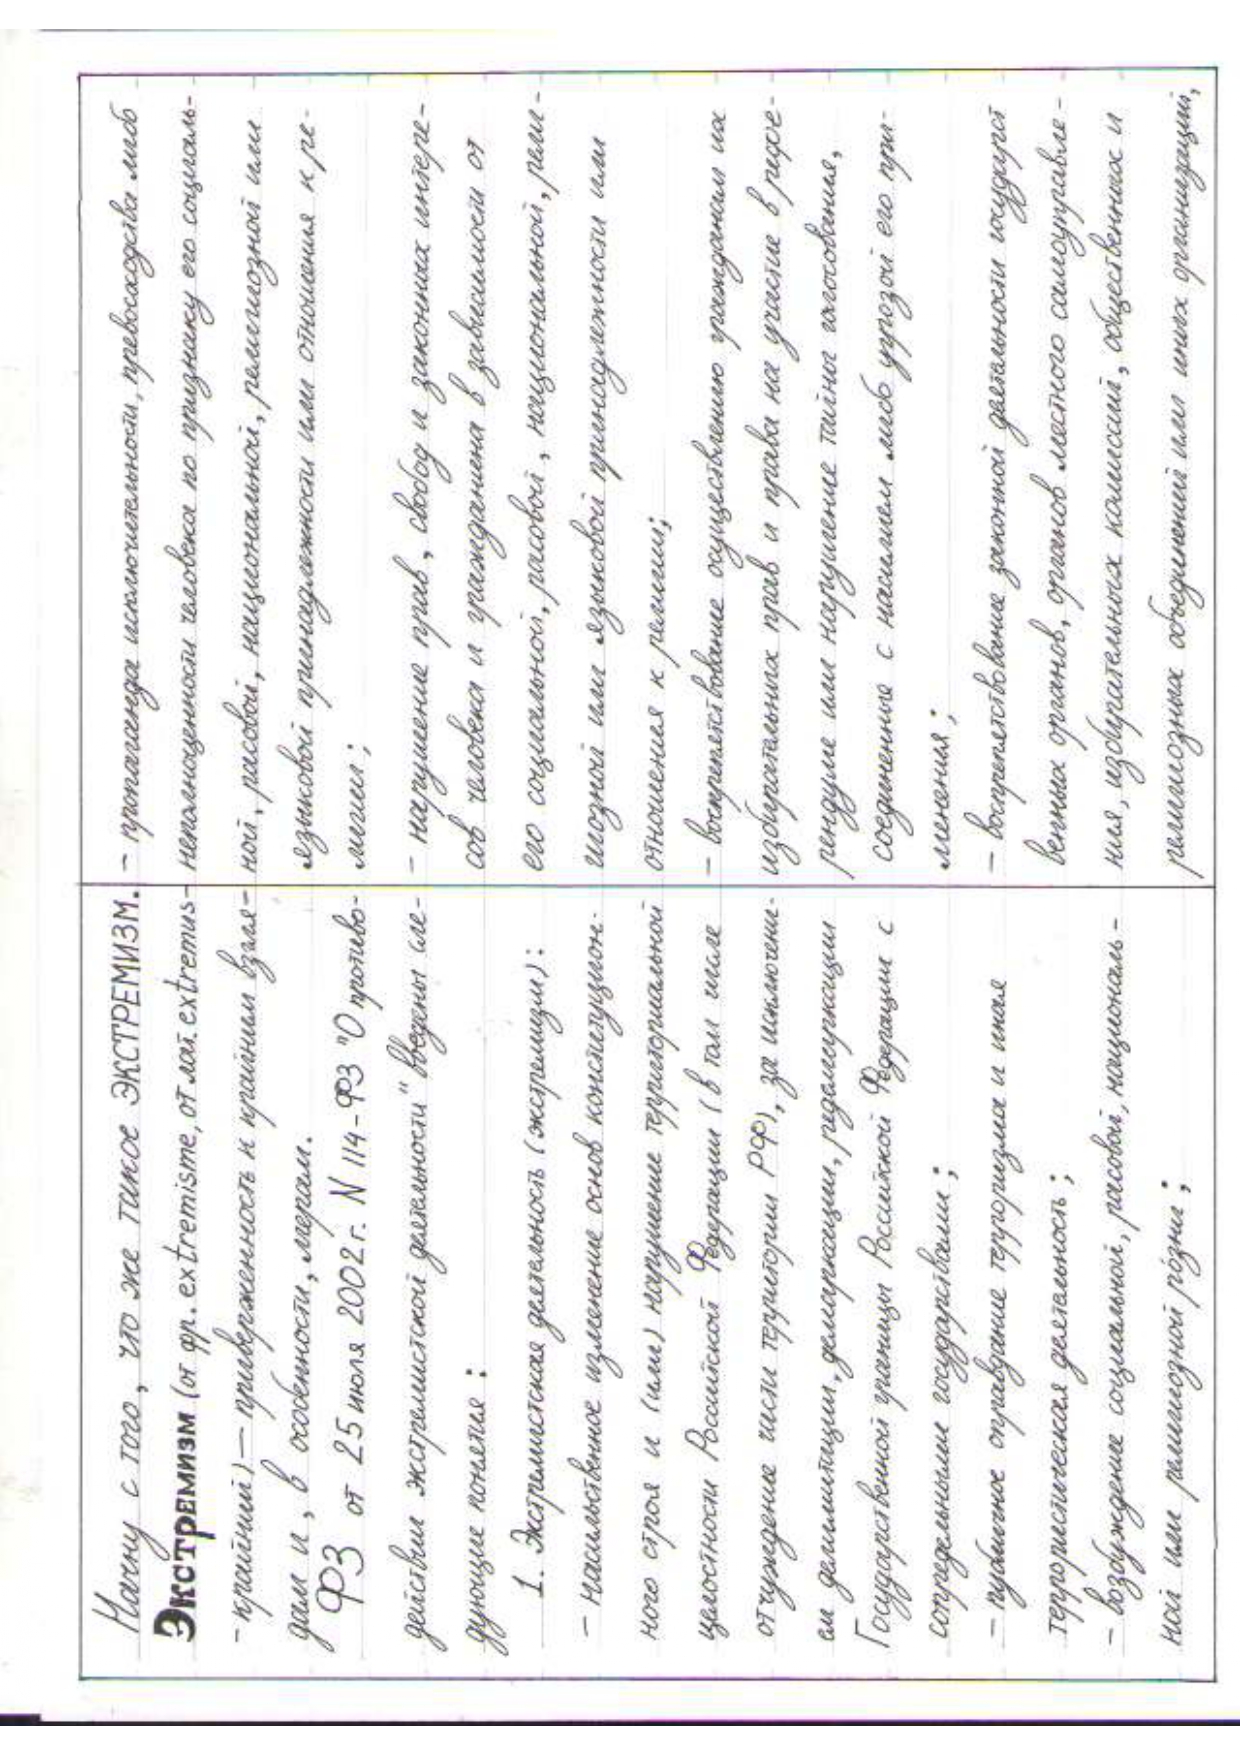 Начну с того, что же такое ЭКСТРЕМИЗМ.
Экстремизм (от фр. extremisme, от лат. extremus-
- крайний) — приверженность к крайним взгля-
дам и, в особенности, мерам.
ФЗ от 25 июля 2002 г. N 114-ФЗ "О противо-
действии экстремистской деятельности" введены сле-
дующие понятия:
1. Экстремистская деятельность (экстремизм):
- насильственное изменение основ конституцион-
ного строя и (или) нарушение территориальной
целостности Российской Федерации (в том числе
отчуждение части территории РФ), за исключени-
ем делимитации, демаркации, редемаркации
Государственной границы Российской Федерации с
сопредельными государствами;
- публичное оправдание терроризма и иная
террористическая деятельность;
- возбуждение социальной, расовой, националь-
ной или религиозной розни;
- пропаганда исключительности, превосходства либо
неполноценности человека по признаку его социаль-
ной, расовой, национальной, религиозной или
языковой принадлежности или отношения к ре-
лигии;
- нарушение прав, свобод и законных интере-
сов человека и гражданина в зависимости от
его социальной, расовой, национальной, рели-
гиозной или языковой принадлежности или
отношения к религии;
- воспрепятствование осуществлению гражданам их
избирательных прав и права на участие в рефе-
рендуме или нарушение тайны голосования,
соединенные с насилием либо угрозой его при-
менения;
- воспрепятствование законной деятельности государст
венных органов, органов местного самоуправле-
ния, избирательных комиссий, общественных и
религиозных объединений или иных организаций,